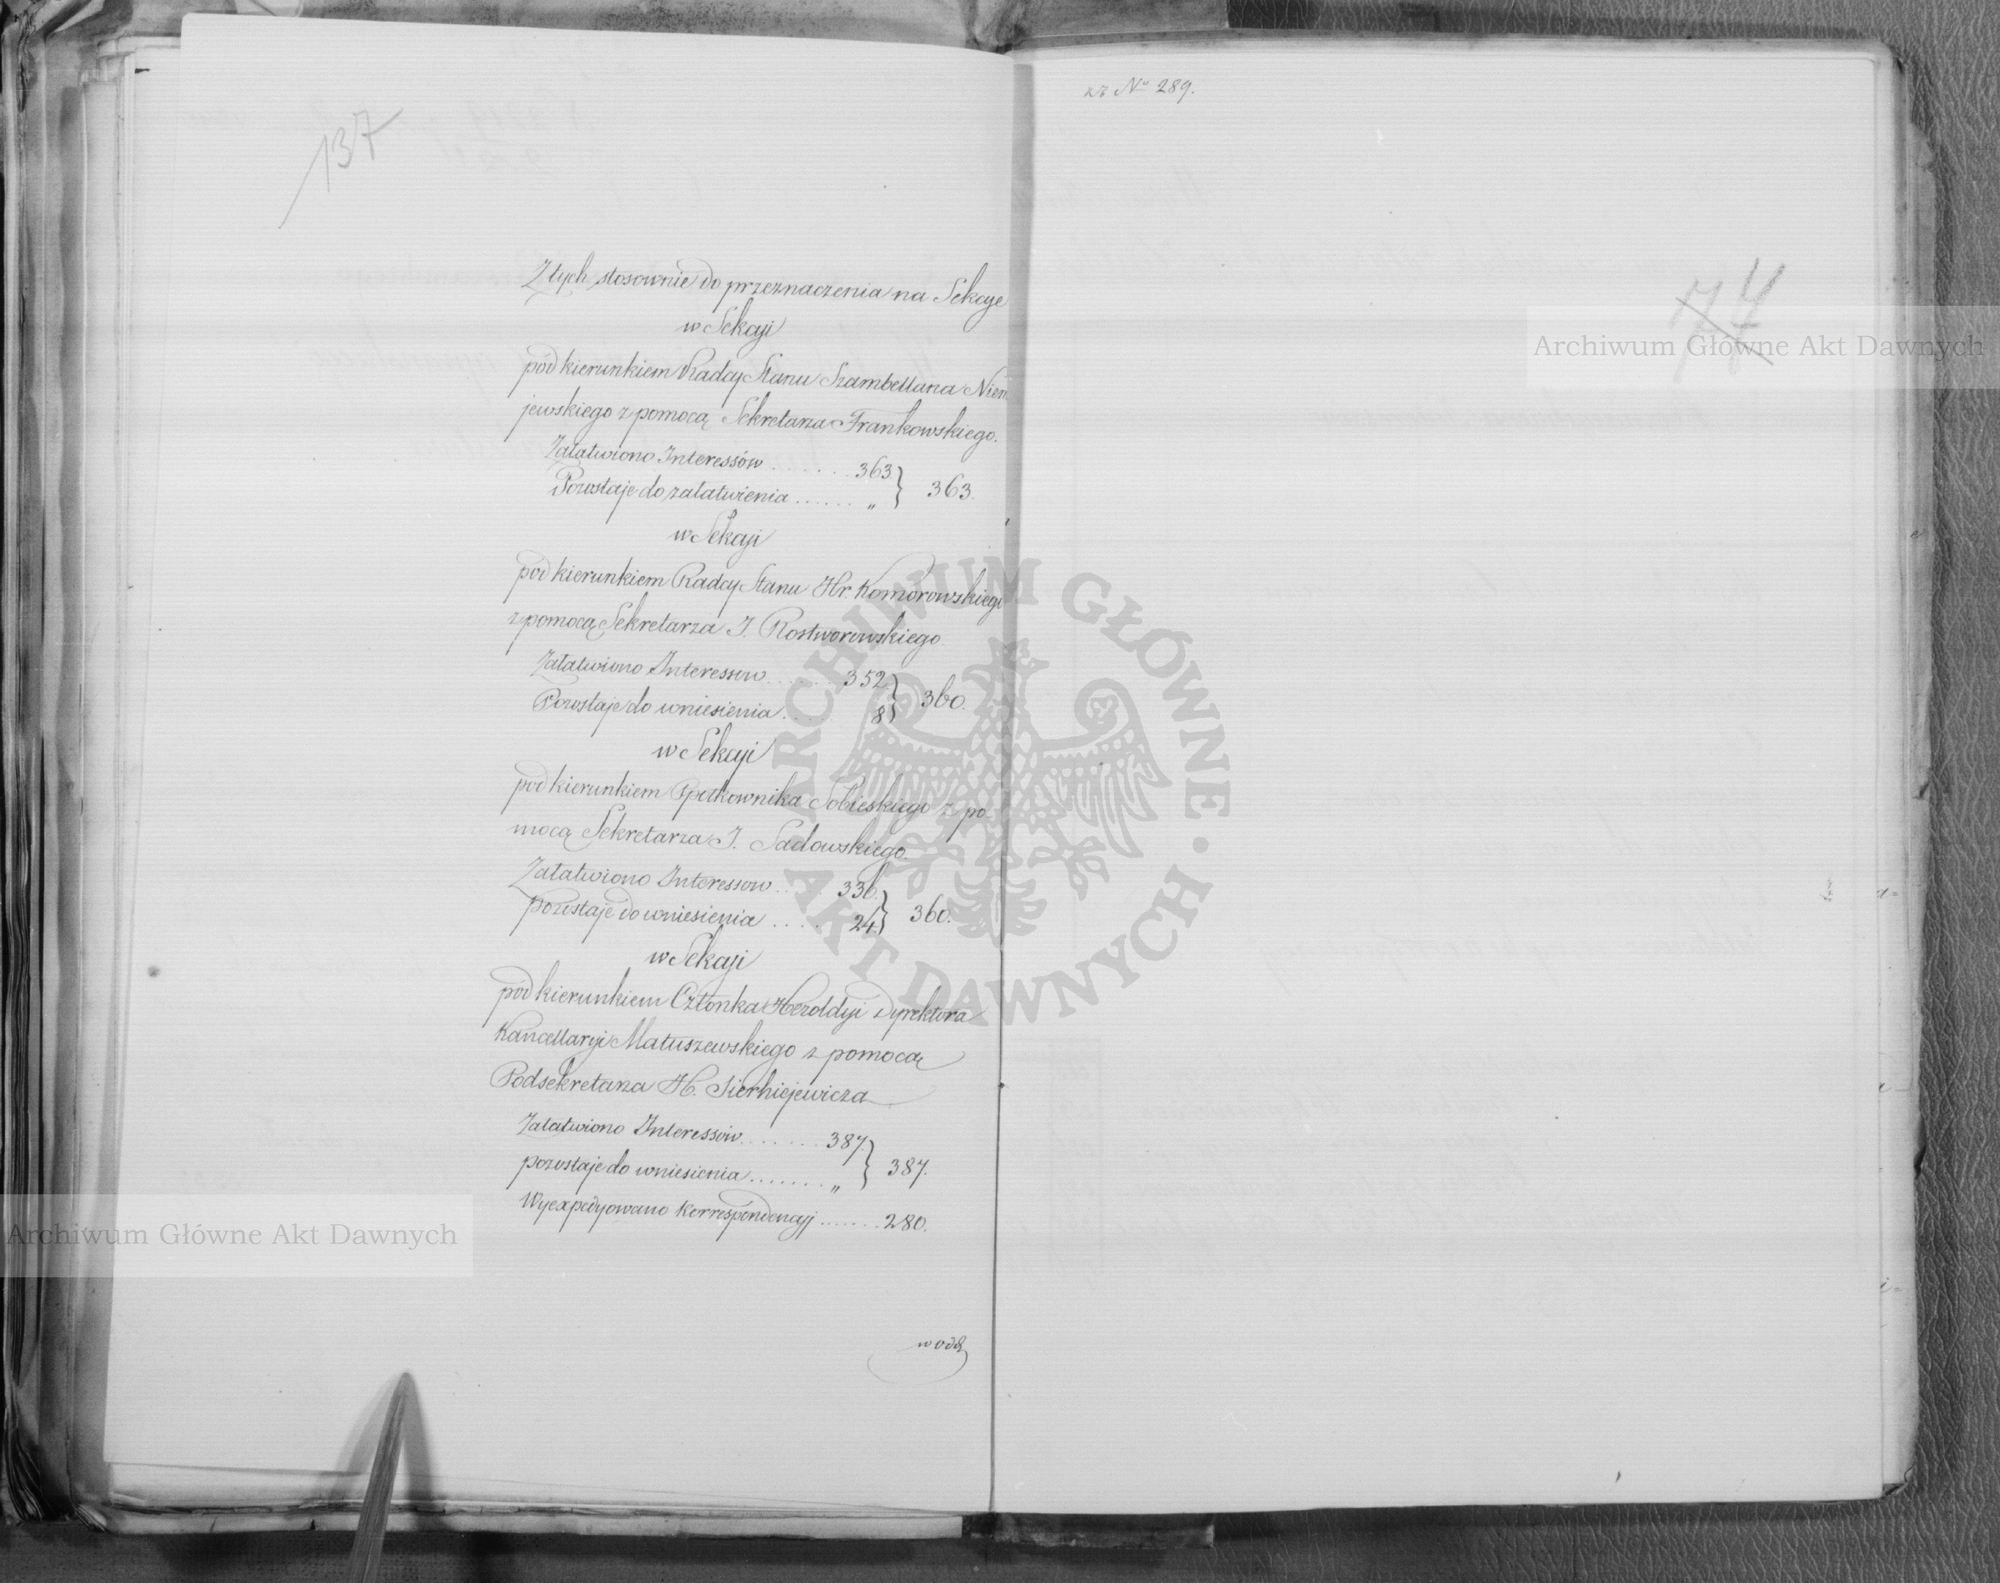 137
Z tych stosownie do przeznaczenia na Sekcye
w Sekcyi
pod kierunkiem Radcy Stanu Szambellana Niem
jewskiego z pomocą Sekretarza Frankowskiego.
Załatwiono Interessów ....... 363 } 363.
Pozostaje do załatwienia ...... „
w Sekcyi
pod kierunkiem Radcy Stanu Hr. Komorowskiego
z pomocą Sekretarza J. Rostworowskiego
Załatwiono Interessow ....... 352 } 360.
Pozostaje do wniesienia .... 8
w Sekcyi
pod kierunkiem Półkownika Sobieskiego z po-
mocą Sekretarza J. Sadowskiego.
Załatwiono Interessow .. 336. } 360.
pozostaje do wniesienia .... 24
w Sekcyi
pod kierunkiem Członka Heroldyi Dyrektora
Kancellaryi Matuszewskiego z pomocą
Podsekretarza H. Sierhiejewicza
Załatwiono Interessów ....... 387. } 387.
pozostaje do wniesienia ....... „
Wyexpedyowano korrespondencyj ....... 280.
w odd
къ № 289.
74
Archiwum Główne Akt Dawnych
ARCHIWUM GŁÓWNE · AKT DAWNYCH ·
Archiwum Główne Akt Dawnych